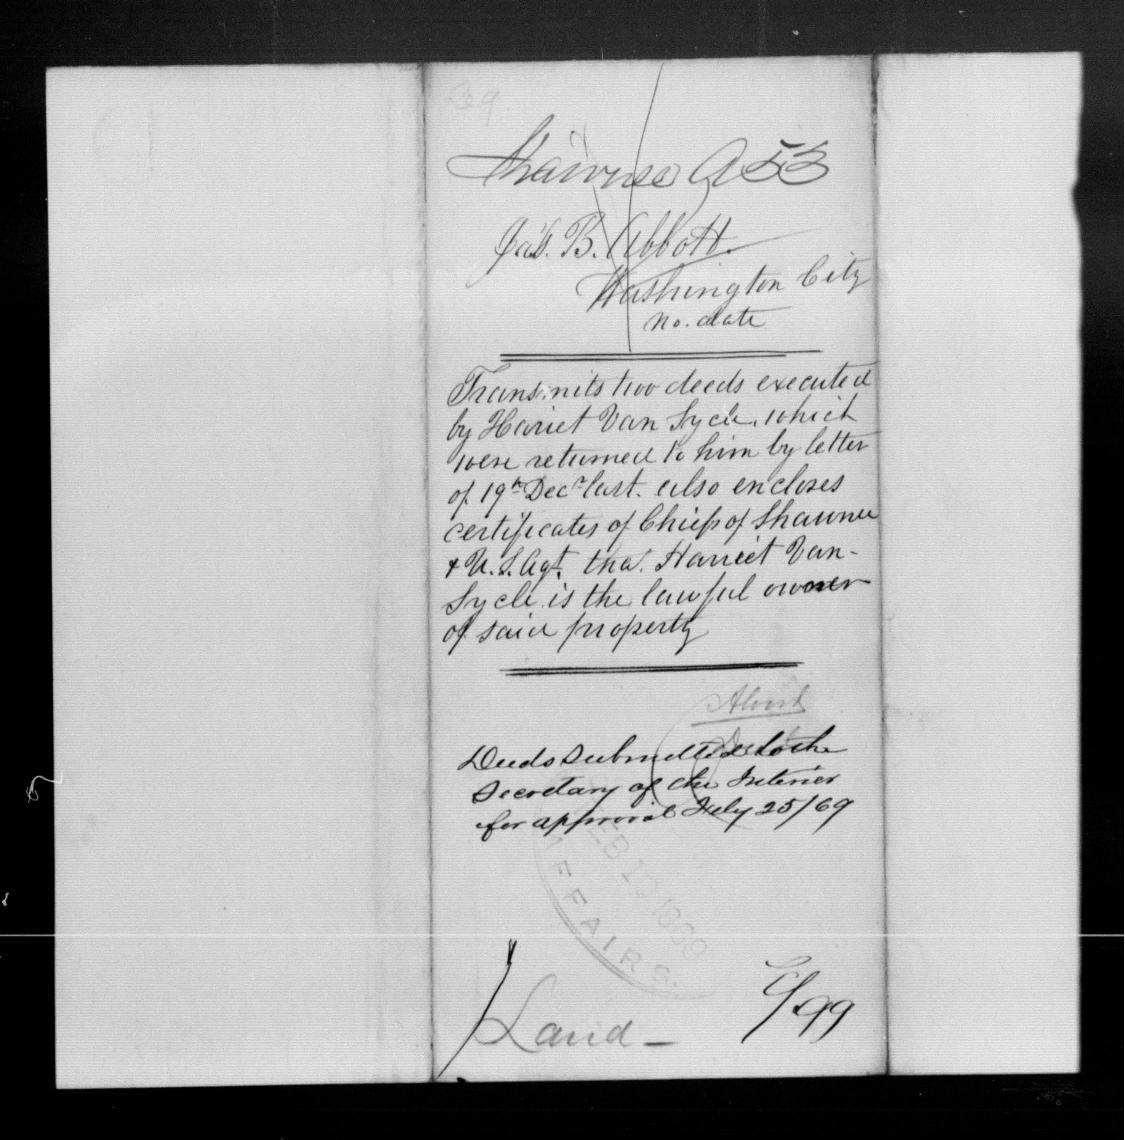 Shawnee A 53
Jas. B. Abbott.
Washington City
no. date
Transmits two deeds executed
by Hariet Van Sycle, which
were returned to him by letter
of 19th Decr last. also encloses
certificates of Chiefs of Shawnee
& U.S. Agt. that Harriet Van-
Sycle is the lawful owner
of said property
Deeds submitted to the
Secretary of the Interior
for approval July 25/69
FEB 1 1869
AFFAIRS.
Land -
99